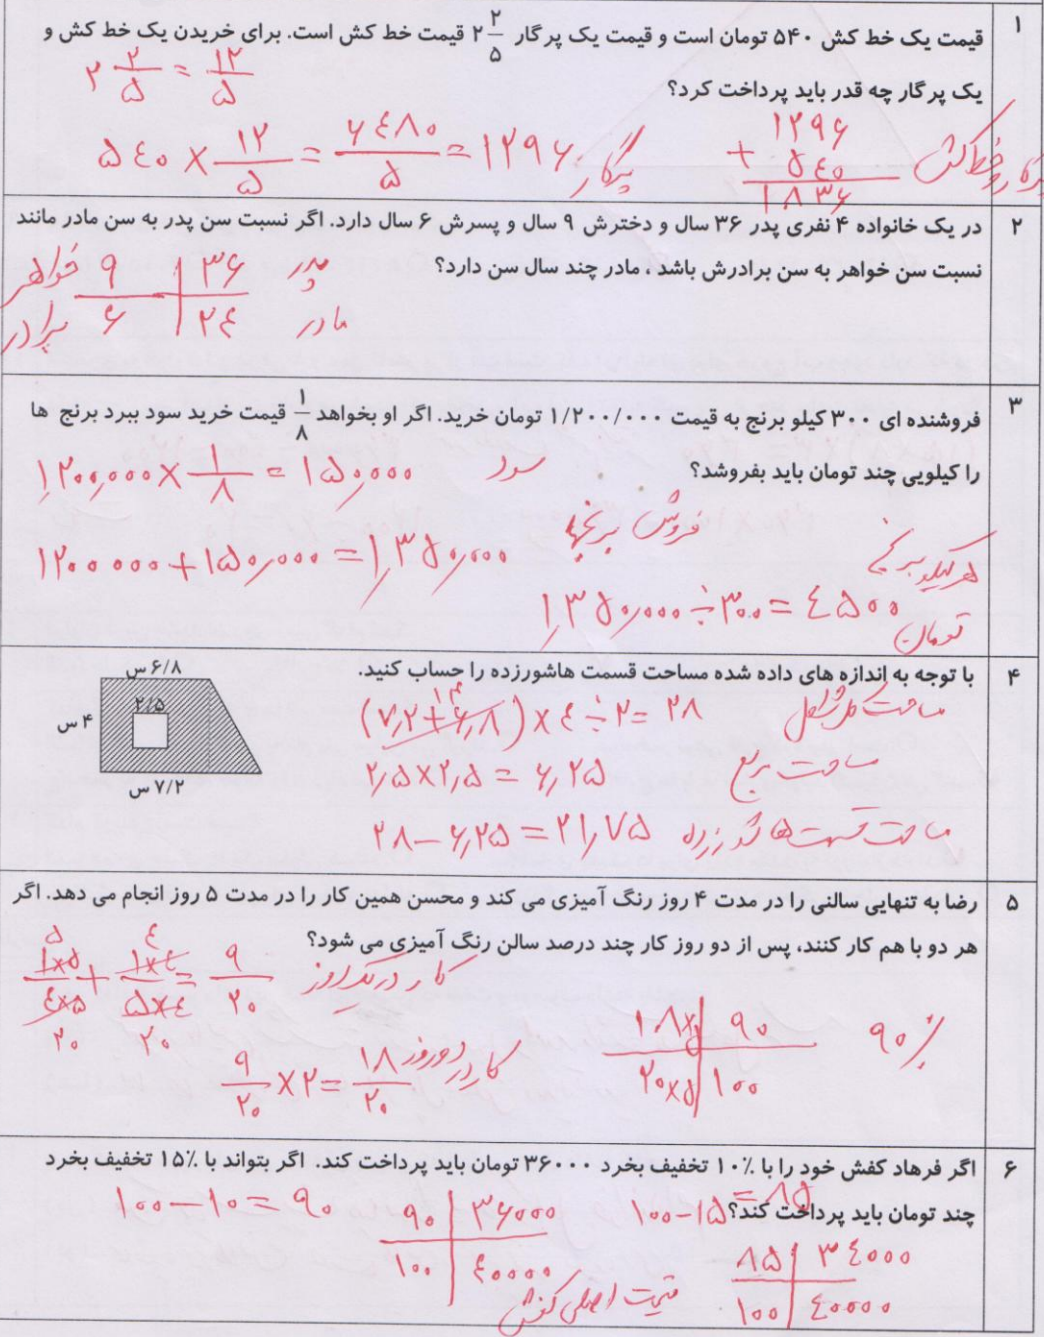 ۱ قیمت یک خط کش ۵۴۰ تومان است و قیمت یک پرگار ۲ ۲/۵ قیمت خط کش است. برای خریدن یک خط کش و
۲ ۲/۵ = ۱۲/۵
یک پرگار چه قدر باید پرداخت کرد؟
۵۴۰ × ۱۲/۵ = ۶۴۸۰/۵ = ۱۲۹۶ پرگار
۱۲۹۶
+ ۵۴۰
۱۸۳۶
پرگار و خط کش
۲ در یک خانواده ۴ نفری پدر ۳۶ سال و دخترش ۹ سال و پسرش ۶ سال دارد. اگر نسبت سن پدر به سن مادر مانند
نسبت سن خواهر به سن برادرش باشد، مادر چند سال سن دارد؟
خواهر ۹ | ۳۶ پدر
برادر ۶ | ۲۴ مادر
۳ فروشنده ای ۳۰۰ کیلو برنج به قیمت ۱/۲۰۰/۰۰۰ تومان خرید. اگر او بخواهد ۱/۸ قیمت خرید سود ببرد برنج ها
را کیلویی چند تومان باید بفروشد؟
۱,۲۰۰,۰۰۰ × ۱/۸ = ۱۵۰,۰۰۰ سود
۱۲۰۰۰۰۰ + ۱۵۰,۰۰۰ = ۱,۳۵۰,۰۰۰ فروش برنجها
۱,۳۵۰,۰۰۰ ÷ ۳۰۰ = ۴۵۰۰ تومان هر کیلو برنج
۴ با توجه به اندازه های داده شده مساحت قسمت هاشورزده را حساب کنید.
۶/۸ س
۲/۵
۴ س
۷/۲ س
۱۴
(۷,۲+۶,۸) × ۴ ÷ ۲ = ۲۸ مساحت کل شکل
۲,۵×۲,۵ = ۶,۲۵ مساحت مربع
۲۸ − ۶,۲۵ = ۲۱,۷۵ مساحت قسمت هاشورزده
۵ رضا به تنهایی سالنی را در مدت ۴ روز رنگ آمیزی می کند و محسن همین کار را در مدت ۵ روز انجام می دهد. اگر
هر دو با هم کار کنند، پس از دو روز کار چند درصد سالن رنگ آمیزی می شود؟
۵ ۴
۱×۵/۴×۵ + ۱×۴/۵×۴ = ۹/۲۰ کار در یک روز
۲۰ ۲۰
۹/۲۰ × ۲ = ۱۸/۲۰ کار در دو روز
۱۸×۵ | ۹۰
۲۰×۵ | ۱۰۰
۹۰٪
۶ اگر فرهاد کفش خود را با ۱۰٪ تخفیف بخرد ۳۶۰۰۰ تومان باید پرداخت کند. اگر بتواند با ۱۵٪ تخفیف بخرد
چند تومان باید پرداخت کند؟
۱۰۰−۱۰ = ۹۰
۹۰ | ۳۶۰۰۰
۱۰۰ | ۴۰۰۰۰
قیمت اصلی کفش
۱۰۰−۱۵ = ۸۵
۸۵ | ۳۴۰۰۰
۱۰۰ | ۴۰۰۰۰